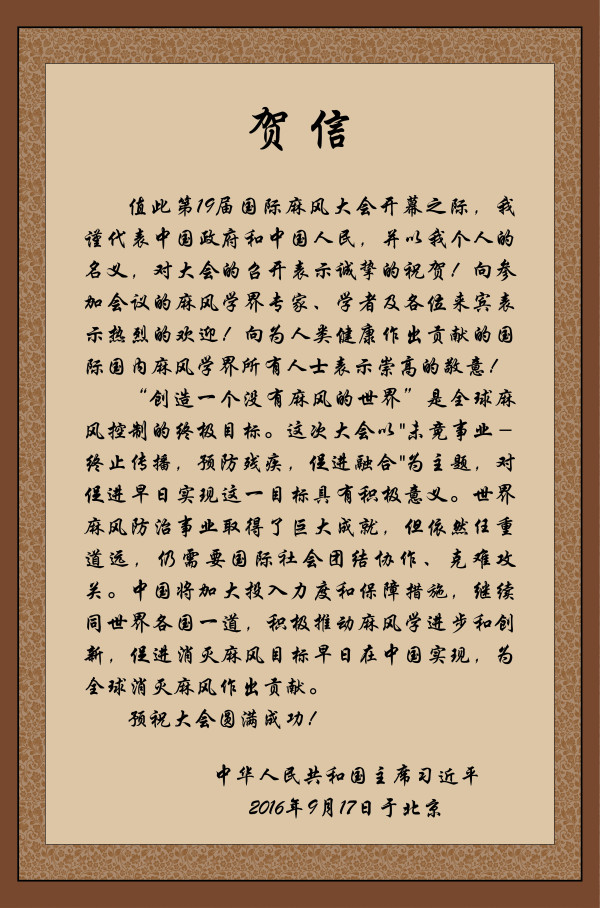 贺信
值此第19届国际麻风大会开幕之际，我
谨代表中国政府和中国人民，并以我个人的
名义，对大会的召开表示诚挚的祝贺！向参
加会议的麻风学界专家、学者及各位来宾表
示热烈的欢迎！向为人类健康作出贡献的国
际国内麻风学界所有人士表示崇高的敬意！
“创造一个没有麻风的世界”是全球麻
风控制的终极目标。这次大会以"未竟事业－
终止传播，预防残疾，促进融合"为主题，对
促进早日实现这一目标具有积极意义。世界
麻风防治事业取得了巨大成就，但依然任重
道远，仍需要国际社会团结协作、克难攻
关。中国将加大投入力度和保障措施，继续
同世界各国一道，积极推动麻风学进步和创
新，促进消灭麻风目标早日在中国实现，为
全球消灭麻风作出贡献。
预祝大会圆满成功！
中华人民共和国主席习近平
2016年9月17日于北京